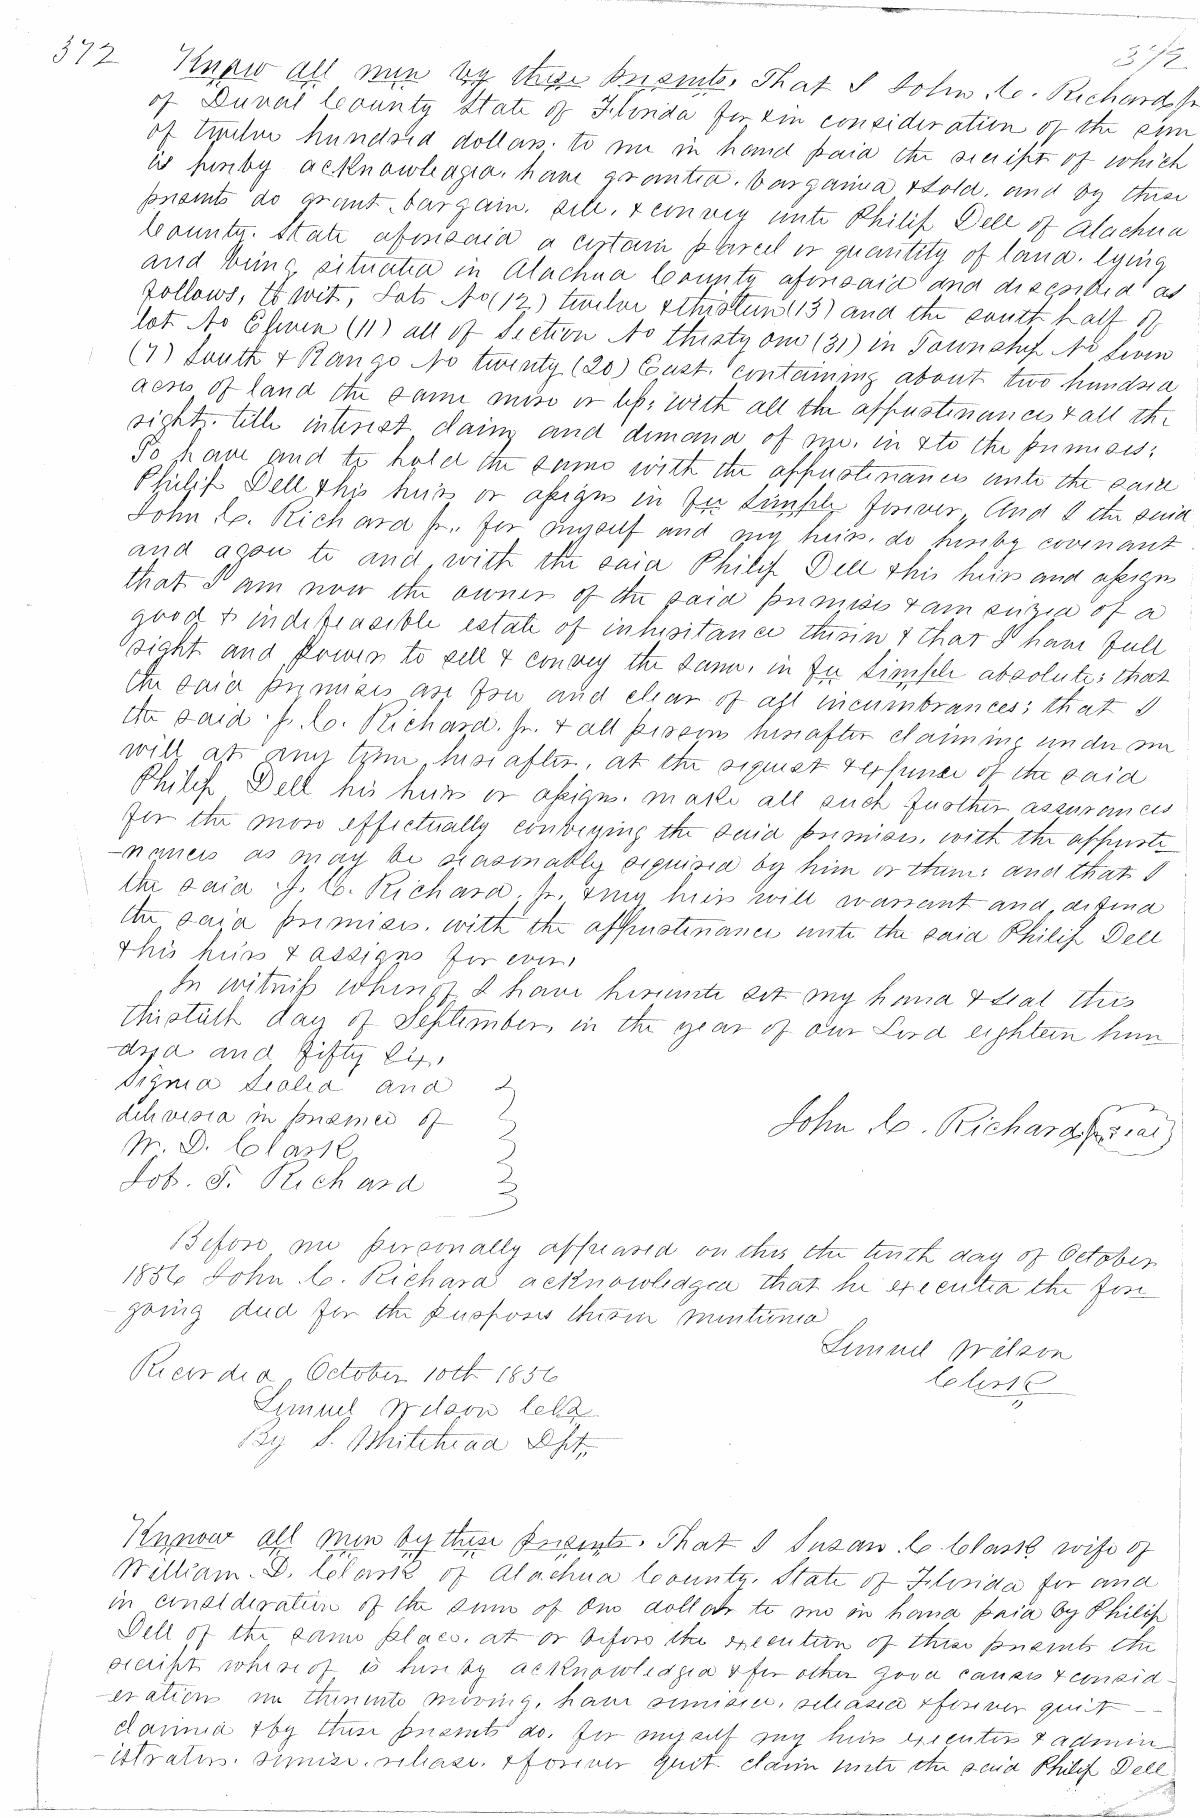 372 372
Know all men by these presents, That I John C. Richard Jr
of Duval County State of Florida for & in consideration of the sum
of twelve hundred dollars. to me in hand paid the receipt of which
is hereby acknowledged. have granted. bargained & sold. and by these
presents do grant. bargain. sell. & convey unto Philip Dell of Alachua
County. State aforesaid a certain parcel or quantity of land. lying
and being situated in Alachua County aforesaid and described as
follows, to wit, Lots No (12) twelve & thirteen (13) and the south half of
lot No Eleven (11) all of Section No thirty one (31) in Township No Seven
(7) South & Range No twenty (20) East. containing about two hundred
acres of land the same more or less; with all the appurtenances & all the
right. title interest claim and demand of me. in & to the premises;
To have and to hold the same with the appurtenances unto the said
Philip Dell & his heirs or assigns in fee simple forever. And I the said
John C. Richard Jr. for myself and my heirs. do hereby covenant
and agree to and with the said Philip Dell & his heirs and assigns
that I am now the owner of the said premises & am seized of a
good & indefeasible estate of inheritance therein & that I have full
right and power to sell & convey the same. in fee simple absolute; that
the said premises are free and clear of all incumbrances; that I
the said J. C. Richard. Jr. & all persons hereafter claiming under me
will at any time hereafter. at the request & expence of the said
Philip Dell his heirs or assigns. make all such further assurances
for the more effectually conveying the said premises. with the appurte
-nances as may be reasonably required by him or them; and that I
the said J. C. Richard. Jr. & my heirs will warrant and defend
the said premises. with the appurtenance unto the said Philip Dell
& his heirs & assigns for ever,
In witness whereof I have hereunto set my hand & seal this
thirtieth day of September, in the year of our Lord eighteen hun
-dred and fifty Six,
Signed Sealed and
delivered in presence of
W. D. Clark
Job. T. Richard
John C. Richard Jr (Seal)
Before me personally appeared on this the tenth day of October
1856 John C. Richard acknowledged that he executed the fore
-going deed for the purposes therein mentioned
Lemuel Wilson
Clerk
Recorded October 10th 1856
Lemuel Wilson Clk
By S. Whitehead Dpt,
Know all men by these presents. That I Susan C. Clark wife of
William. D. Clark of Alachua County. State of Florida for and
in consideration of the sum of One dollar to me in hand paid by Philip
Dell of the same place. at or before the execution of these presents the
receipt whereof is hereby acknowledged & for other good causes & consid-
-erations me thereunto moving. have remised. released & forever quit --
claimed & by these presents do. for myself my heirs executors & admin
-istrators. remise. release. & forever quit claim unto the said Philip Dell